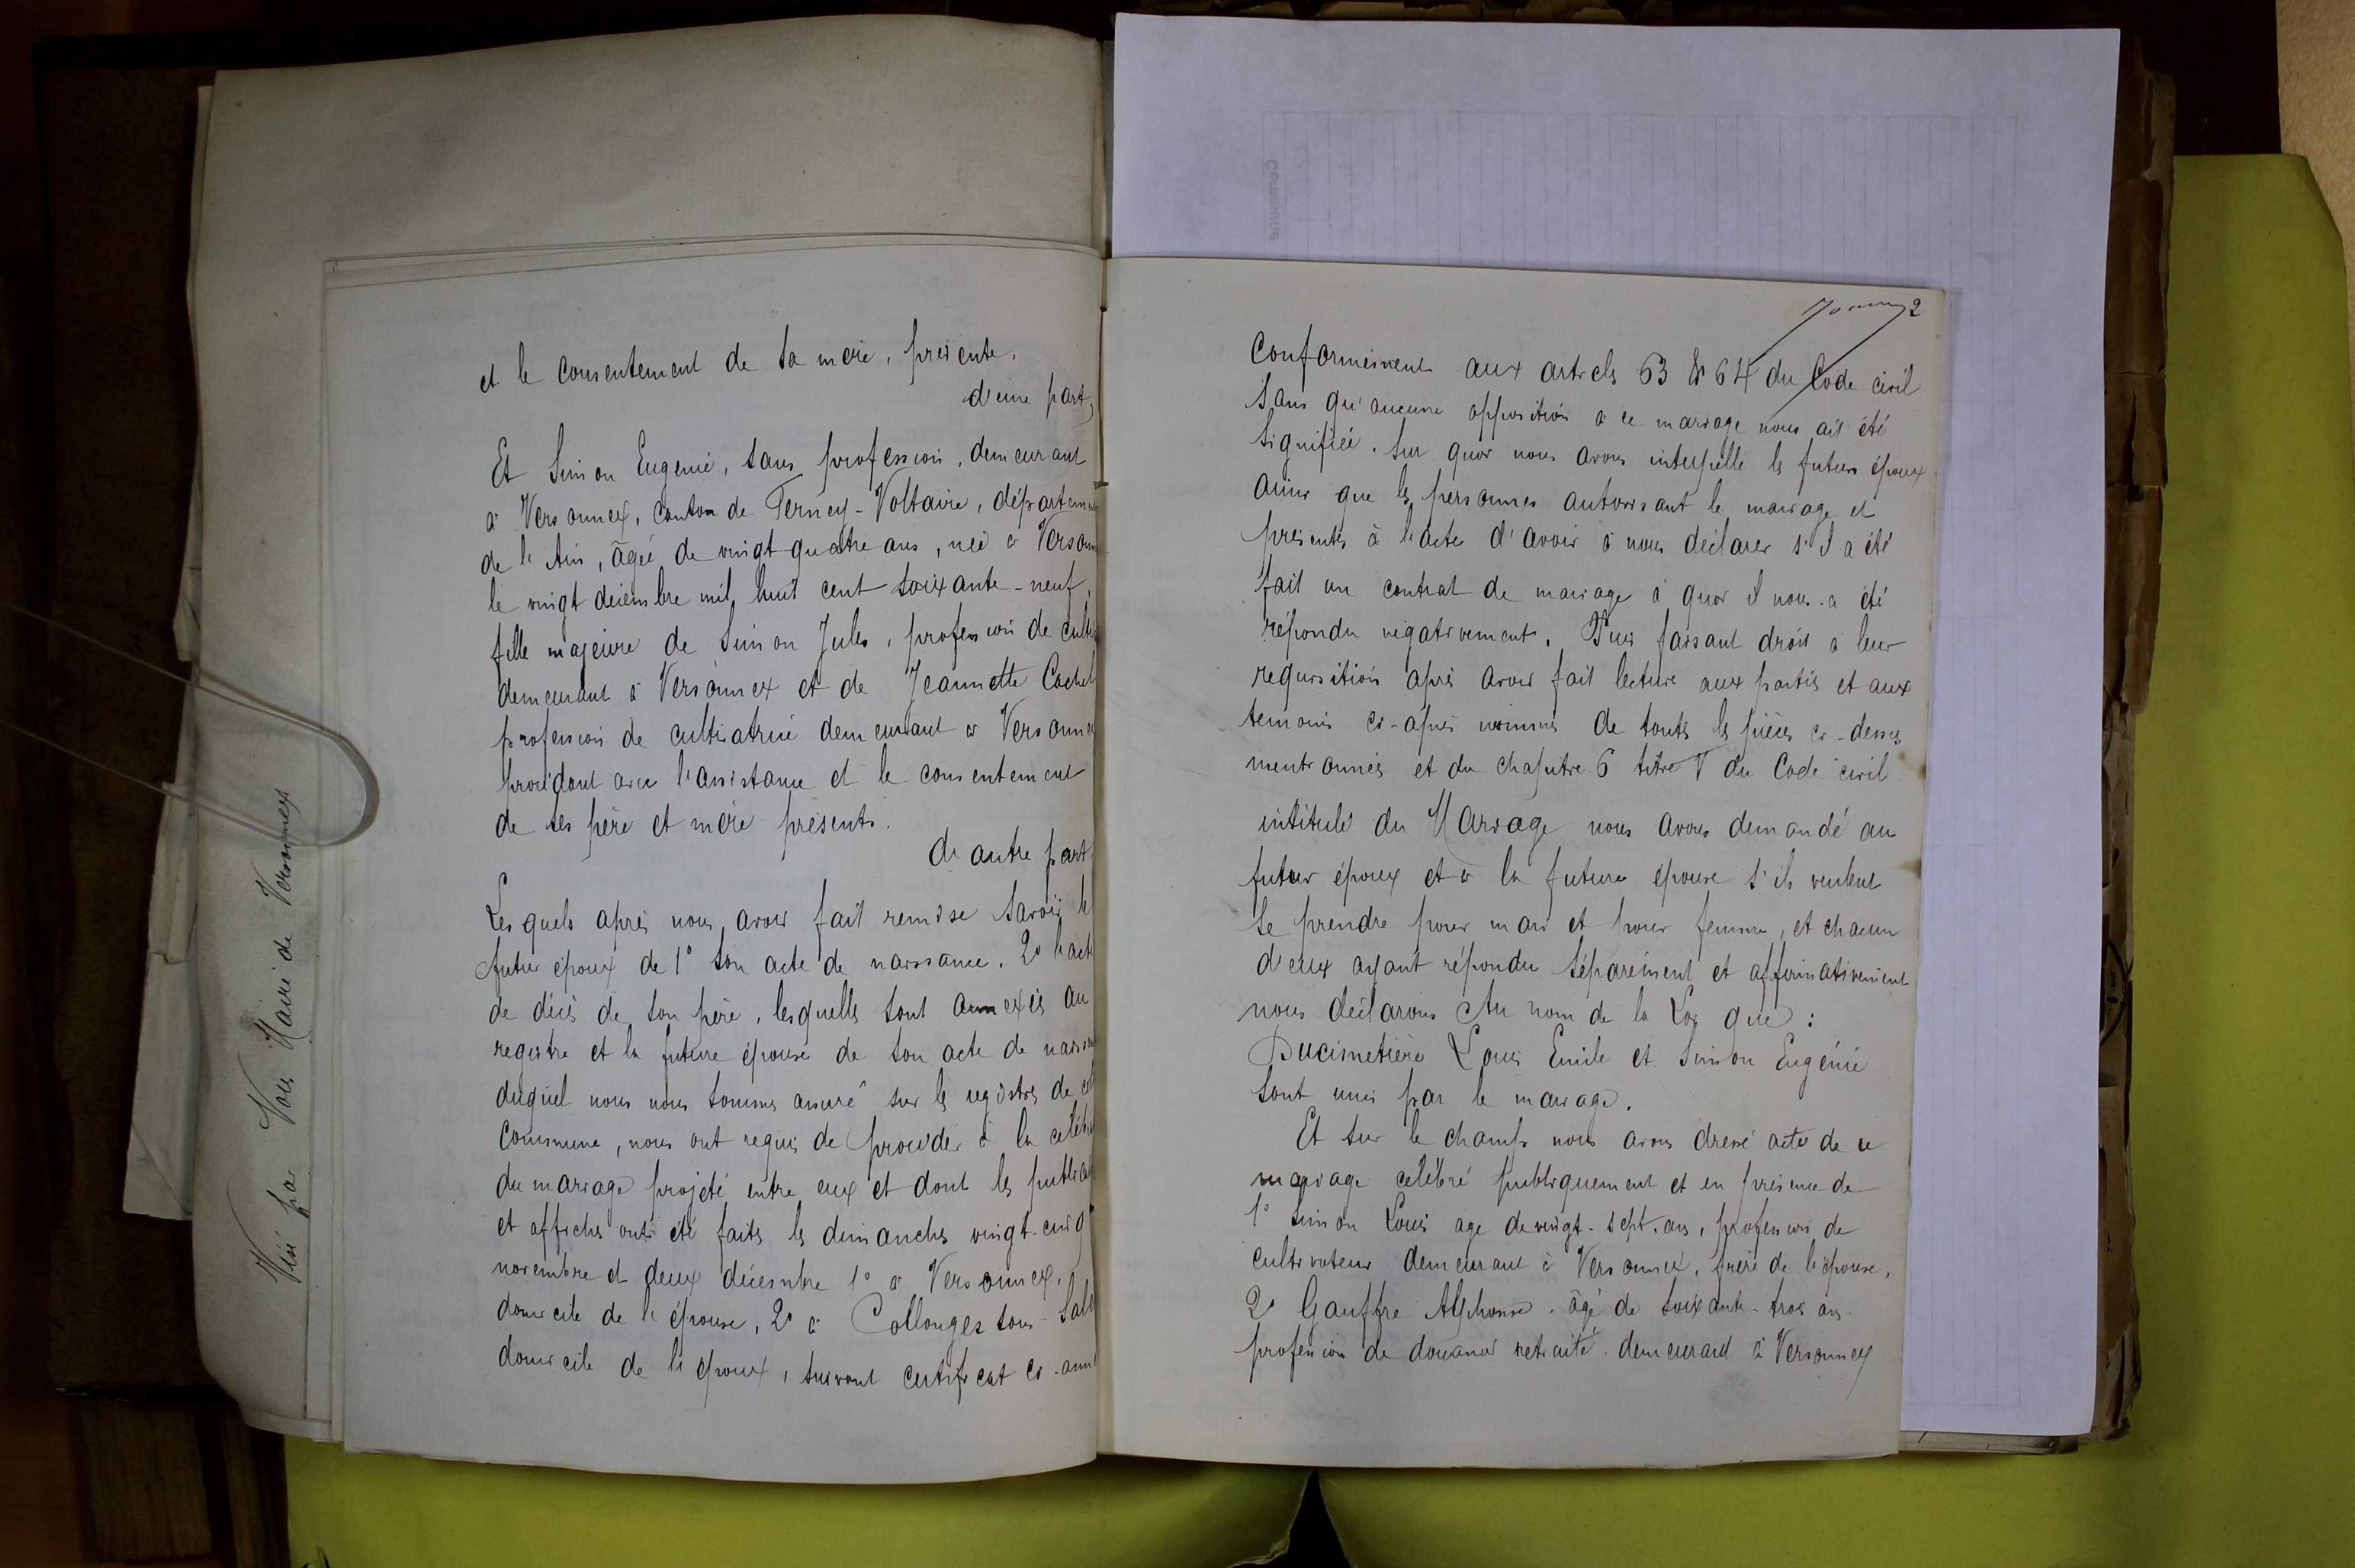 et le consentement de sa mère, présente,
d'une part,
Et Simon Eugénie, sans profession, demeurant
à Versonnex, canton de Ferney-Voltaire, départem
de l'Ain, âgée de vingt quatre ans, née à Verson
le vingt décembre mil huit cent soixante-neuf,
fille majeure de Simon Jules, profession de cult
demeurant à Versonnex et de Jeannette Cachet
profession de cultivatrice demeurant à Versonne
procédant avec l'assistance et le consentement
de ses père et mère présents.
de autre part
Lesquels après nous avoir fait remise savoir le
futur époux de 1° son acte de naissance, 2° l'acte
de décès de son père, lesquelles sont annexés au
registre et la future épouse de son acte de naissan
duquel nous nous sommes assuré sur les registres de cet
commune, nous ont requis de procéder à la céléb
du mariage projeté entre eux et dont les publicat
et affiches ont été faites les dimanches vingt-cinq
novembre et deux décembre 1° à Versonnex,
domicile de l'épouse, 2° à Collonges sous-Salè
domicile de l'époux, suivant certificat ci-ann
2
Conformément aux articles 63 & 64 du Code civil
sans qu'aucune opposition à ce mariage nous ait été
signifiée. Sur quoi nous avons interpellé les futurs époux
ainsi que les personnes autorisant le mariage et
présentes à l'acte d'avoir à nous déclarer s'il a été
fait un contrat de mariage à quoi il nous a été
répondu négativement. Puis faisant droit à leur
réquisition après avoir fait lecture aux parties et aux
témoins ci-après nommés de toutes les pièces ci-dessus
mentionnés et du chapitre 6 titre V du Code civil
intitulé du Mariage nous avons demandé au
futur époux et à la future épouse s'ils veulent
se prendre pour mari et pour femme, et chacun
d'eux ayant répondu séparément et affirmativement
nous déclarons Au nom de la Loi que :
Ducimetière Louis Emile et Simon Eugénie
sont unis par le mariage.
Et sur le champs nous avons dressé acte de ce
mariage célébré publiquement et en présence de
1° Simon Louis age de vingt-sept ans, profession de
cultivateur demeurant à Versonnex, frère de l'épouse,
2° Gauffre Alphonse, âgé de soixante-trois ans
profession de douanier retraité demeurant à Versonnex
Visé par Nous Maire de Versonnex